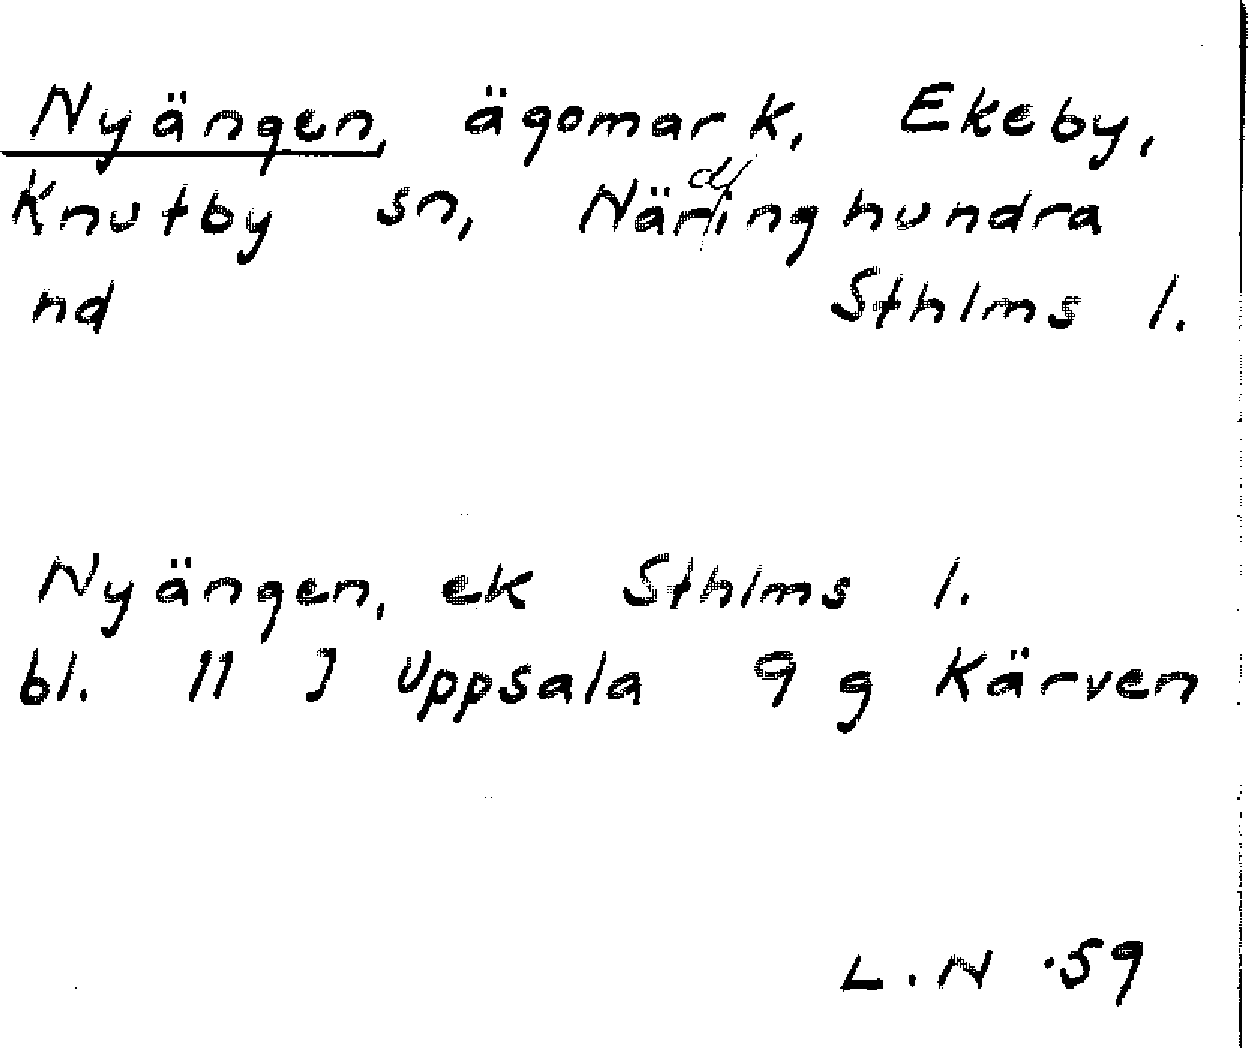 Nyängen, ägomark, Ekeby,
Knutby sn, Närdinghundra
hd Sthlms l.
Nyängen, ek Sthlms l.
bl. 11 J Uppsala 9 g Kärven
L.N .59